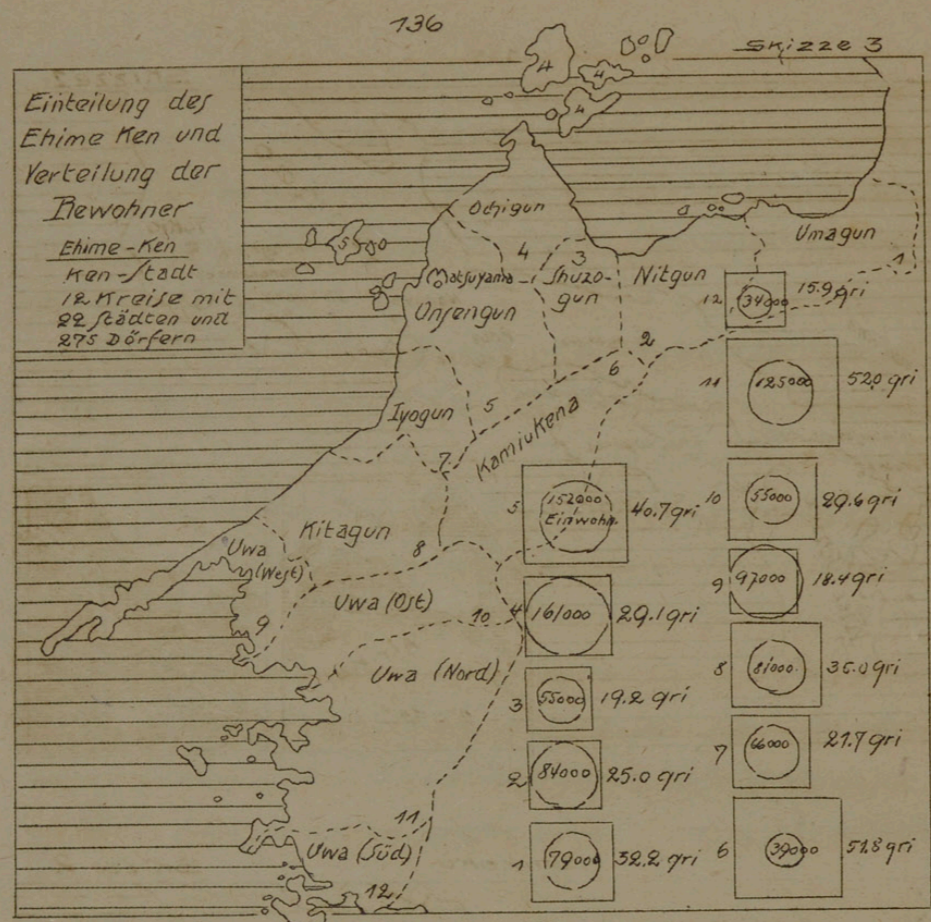 136
Skizze 3
Einteilung des
Ehime Ken und
Verteilung der
Bewohner
Ehime-Ken
Ken-Stadt
12 Kreise mit
22 Städten und
275 Dörfern
4
4
4
5
Ochigun
4
3
Matsuyama
Shuzo-
gun
Nitgun
Umagun
1
Onsengun
2
6
5
Iyogun
7
Kamiukena
Kitagun
8
Uwa
(West)
9
Uwa (Ost)
10
Uwa (Nord)
11
Uwa (Süd)
12
12 34000 15.9 qri
11 125000 52.0 qri
10 55000 29.6 qri
9 97000 18.4 qri
8 81000 35.0 qri
7 66000 21.7 qri
6 39000 51.8 qri
5 152000
Einwohn. 40.7 qri
4 161000 29.1 qri
3 55000 19.2 qri
2 84000 25.0 qri
1 79000 32.2 qri